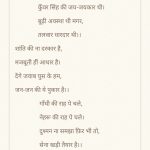 कुँवर सिंह की जय-जयकार थी।
बूढ़ी अवस्था थी मगर,
तलवार धारदार थी।।
शांति की ना दरकार है,
मजबूती हीं आधार है।
देंगे जवाब घुस के हम,
जन-जन की ये पुकार है।।
गाँधी की राह पे चले,
नेहरू की राह पे चले।
दुश्मन ना समझा फिर भी तो,
सेना खड़ी तैयार है।।